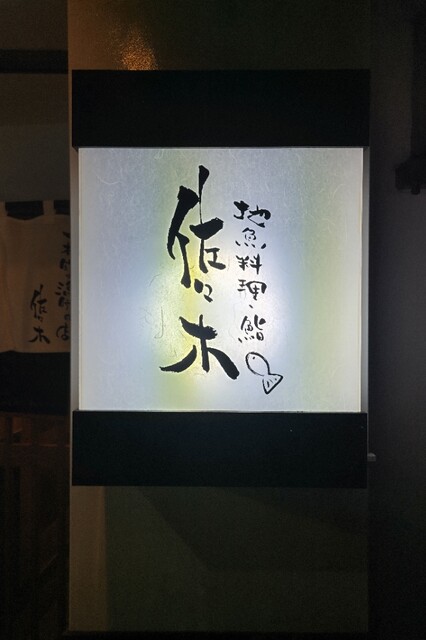 地魚料理・鮨
佐々木
佐々木